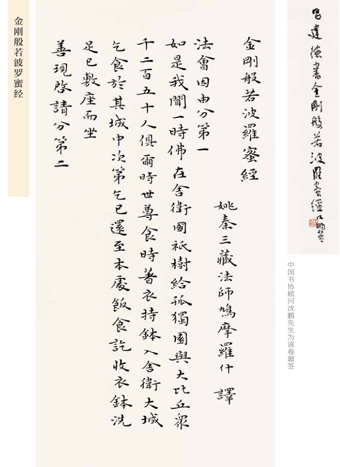 金刚般若波罗蜜经
吕建德书金刚般若波罗蜜经
中国书协顾问沈鹏先生为该卷题签
金剛般若波羅蜜經
姚秦三藏法師鳩摩羅什 譯
法會因由分第一
如是我聞一時佛在舍衛國祇樹給孤獨園與大比丘眾
千二百五十人俱爾時世尊食時著衣持鉢入舍衛大城
乞食於其城中次第乞已還至本處飯食訖收衣鉢洗
足已敷座而坐
善現啓請分第二